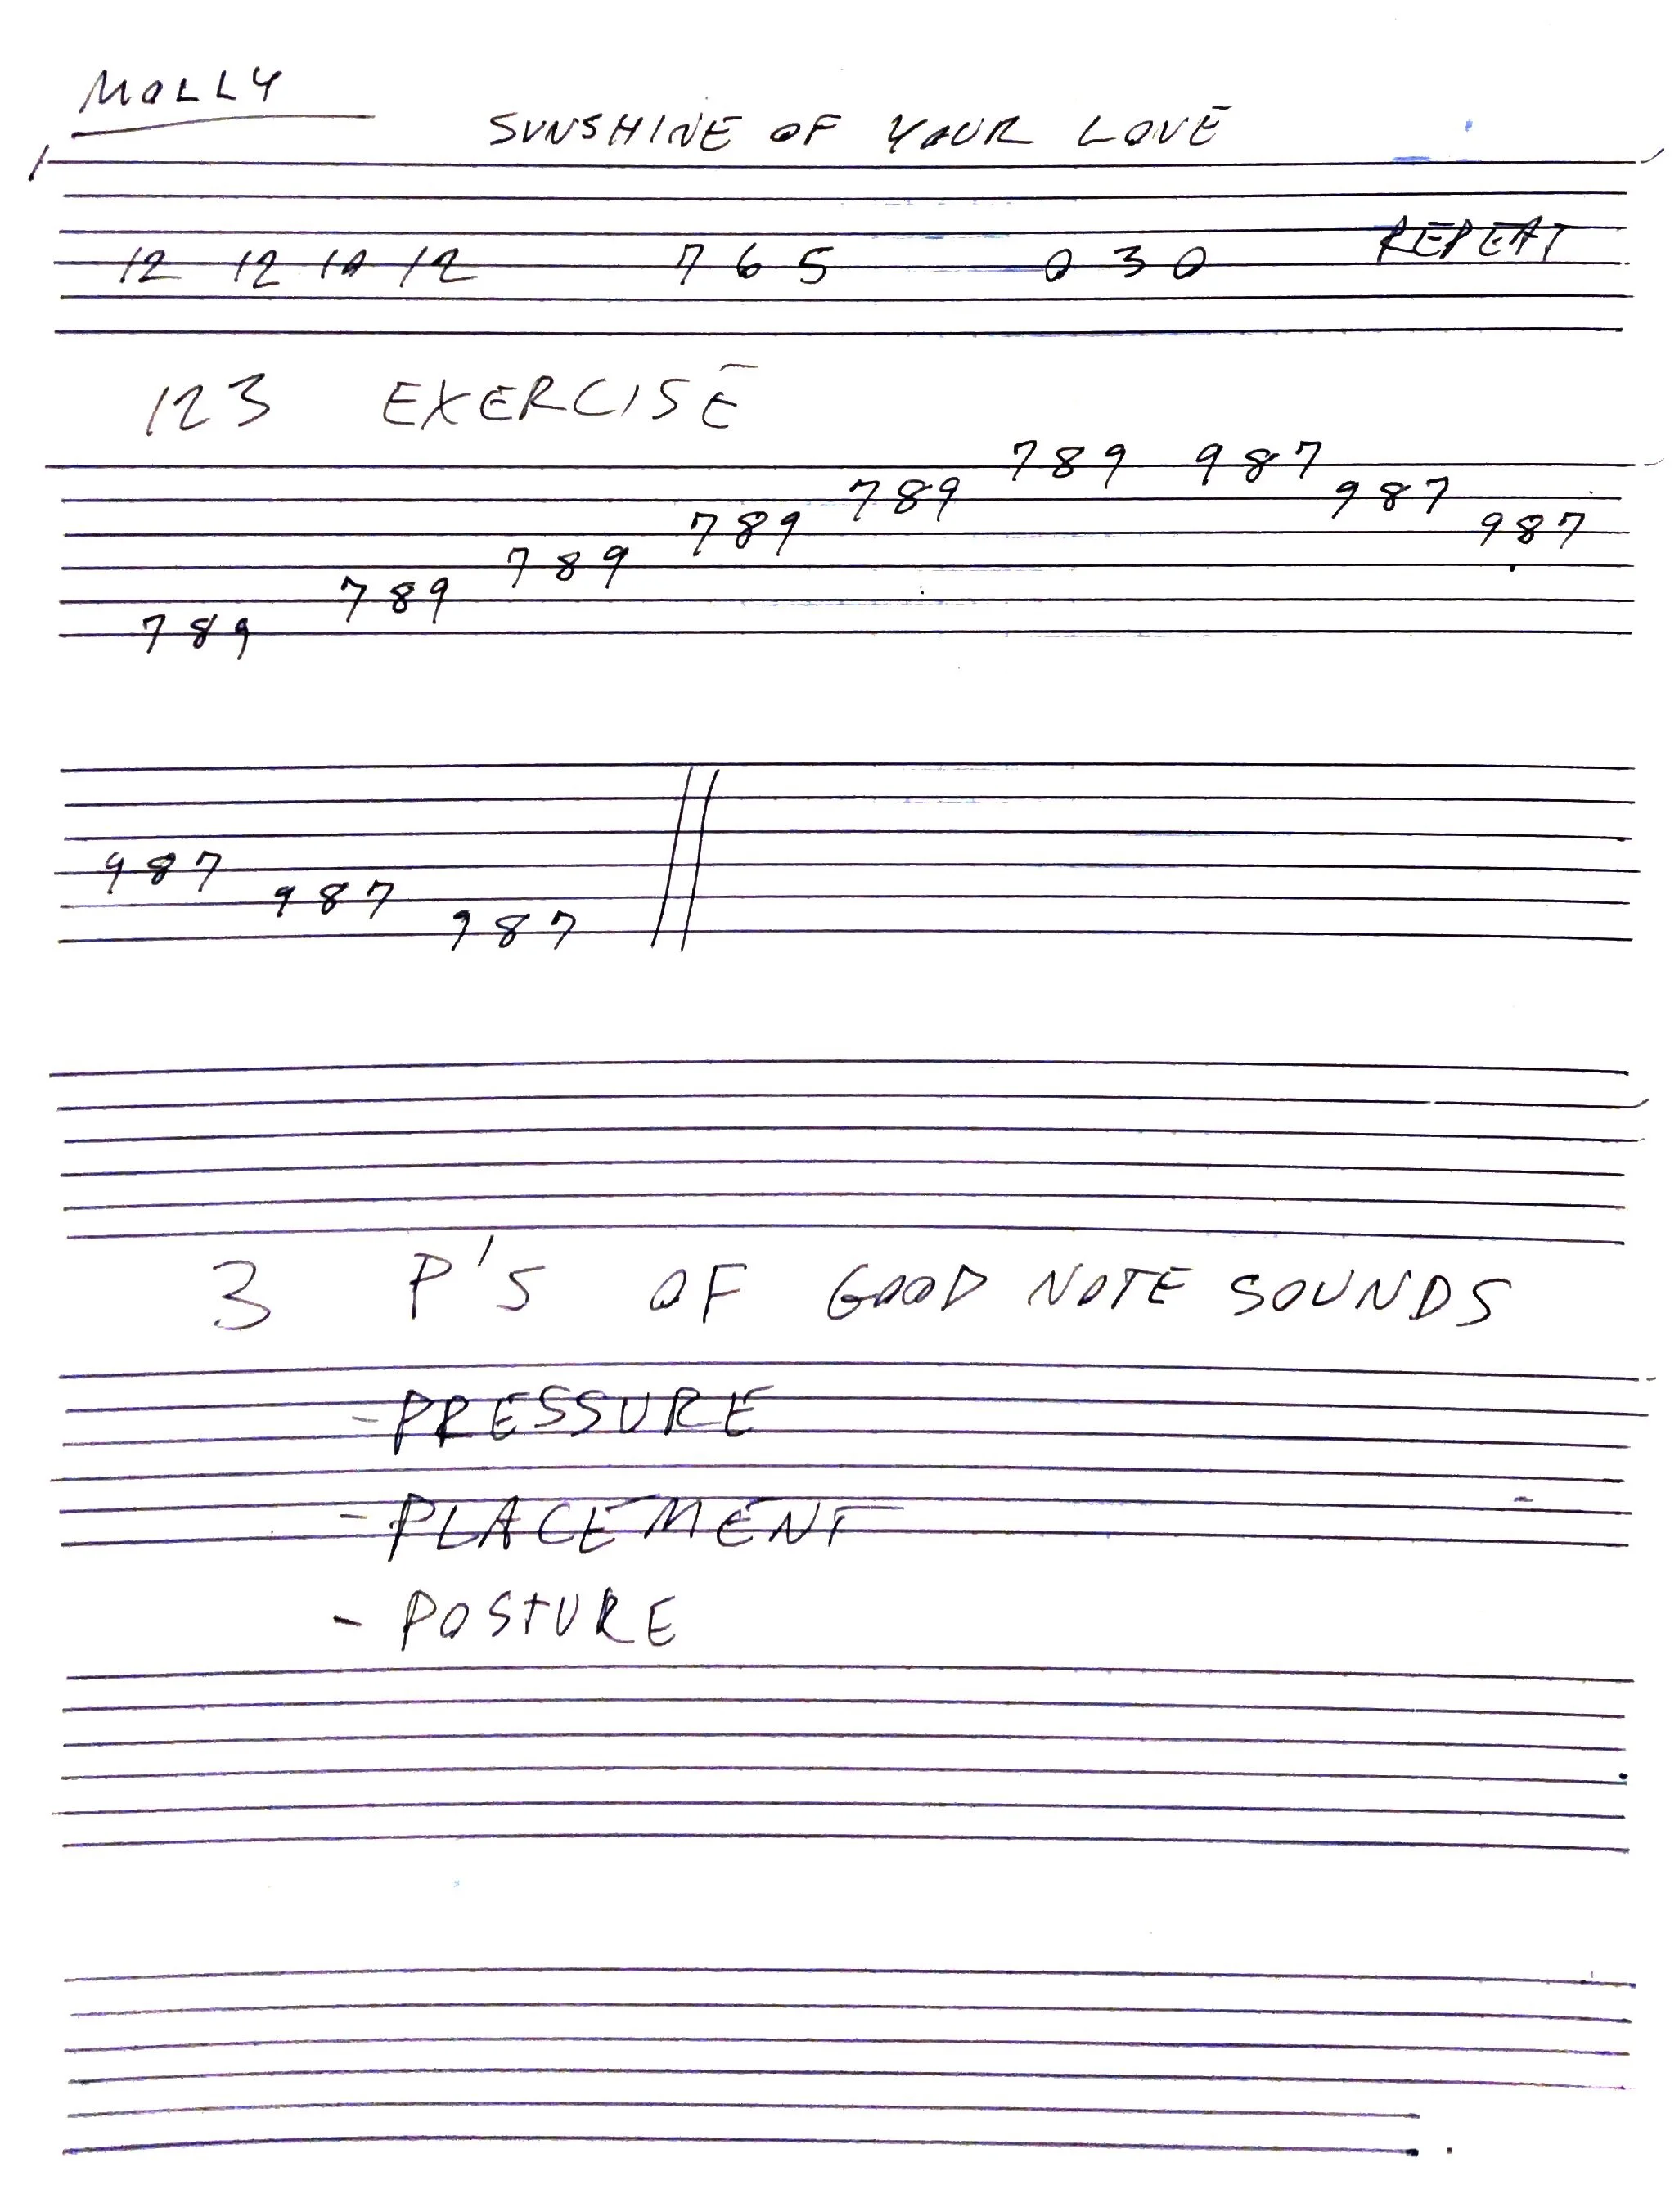 MOLLY
SUNSHINE OF YOUR LOVE
12 12 10 12 7 6 5 0 3 0 REPEAT
123 EXERCISE
789 789 789 789 789 789 987 987 987
987 987 987
3 P'S OF GOOD NOTE SOUNDS
- PRESSURE
- PLACEMENT
- POSTURE